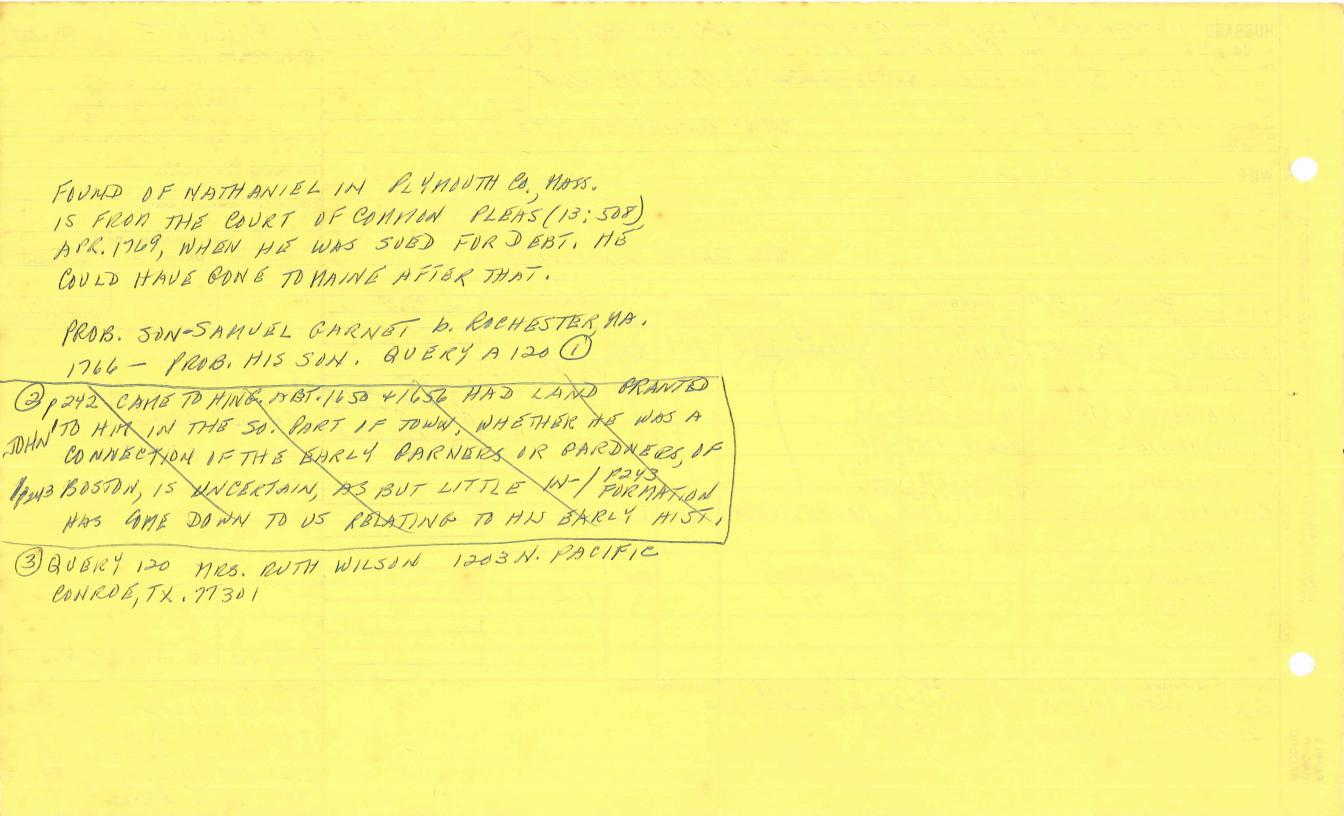 FOUND OF NATHANIEL IN PLYMOUTH CO., MASS.
IS FROM THE COURT OF COMMON PLEAS (13:508)
APR. 1769, WHEN HE WAS SUED FOR DEBT. HE
COULD HAVE GONE TO MAINE AFTER THAT.
PROB. SON-SAMUEL GARNET b. ROCHESTER, MA.
1766 – PROB. HIS SON. QUERY A 120 ①
② p242 CAME TO HING. ABT. 1650 & 1656 HAD LAND GRANTED
JOHN' TO HIM IN THE SO. PART OF TOWN, WHETHER HE WAS A
CONNECTION OF THE EARLY GARNERS OR GARDNERS, OF
p243 BOSTON, IS UNCERTAIN, AS BUT LITTLE IN-/ P243 FORMATION
HAS COME DOWN TO US RELATING TO HIS EARLY HIST.
③ QUERY 120 MRS. RUTH WILSON 1203 N. PACIFIC
CONROE, TX. 77301